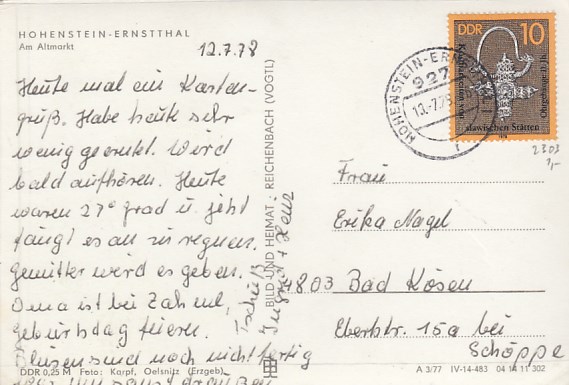 HOHENSTEIN-ERNSTTHAL
Am Altmarkt
12.7.78
Heute mal ein Karten-
gruß. Habe heute sehr
wenig geerntet. Wird
bald aufhören. Heute
waren 27° Grad u. jetzt
fängt es an zu regnen.
Gewitter wird es geben.
Oma ist bei Zahnd,
Geburtstag feiern.
Blusen sind noch nicht fertig
Tschüß
Ingrid + Heinz
BILD UND HEIMAT · REICHENBACH (VOGTL)
DDR 0,25 M Foto: Karpf, Oelsnitz (Erzgeb)
DDR 10
slawischen Stätten
HOHENSTEIN-ERNSTTHAL
927
13.-7.78
r
2303
1,-
Frau
Erika Nagel
4803 Bad Kösen
Eberstr. 15a bei
Schöppe
A 3/77 IV-14-483 04 14 11 302